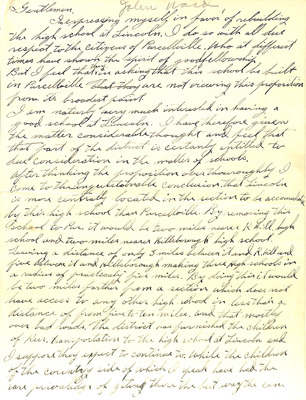 John Ward
Gentlemen,
In expressing myself in favor of rebuilding
the high school at Lincoln, I do so with all due
respect to the citizens of Purcellville, who at different
times have shown the spirit of good fellowship,
But I feel that in asking that this school be built
in Purcellville that they are not viewing this proposition
from its broadest point.
I am naturally very much interested in having a
good school at Lincoln. I have therefore given
the matter considerable thought and feel that
that part of the district is certainly entitled to
due consideration in the matter of schools.
After thinking the proposition over thoroughly I
come to the unquestionable conclusion that Lincoln
is more centrally located in the section to be accomodated
by this high school than Purcellville. By removing this
School to Pur. it would be two miles nearer R Hill high
school and two miles nearer Hillsborough high school.
leaving a distance of only 3 miles between it and R. Hill and
five between it and Hillsborough making three high schools in
a radius of practically five miles. By doing this it would
be two miles farther from a section which does not
have access to any other high school in less than a
distance of from five to ten miles, and that mostly
over bad roads. The district has furnished the children
of Pur. transportation to the high school at Lincoln and
I suppose they expect to continue to, while the children
of the country side of which I speak have had the
rare privilege of getting there the best way they can.